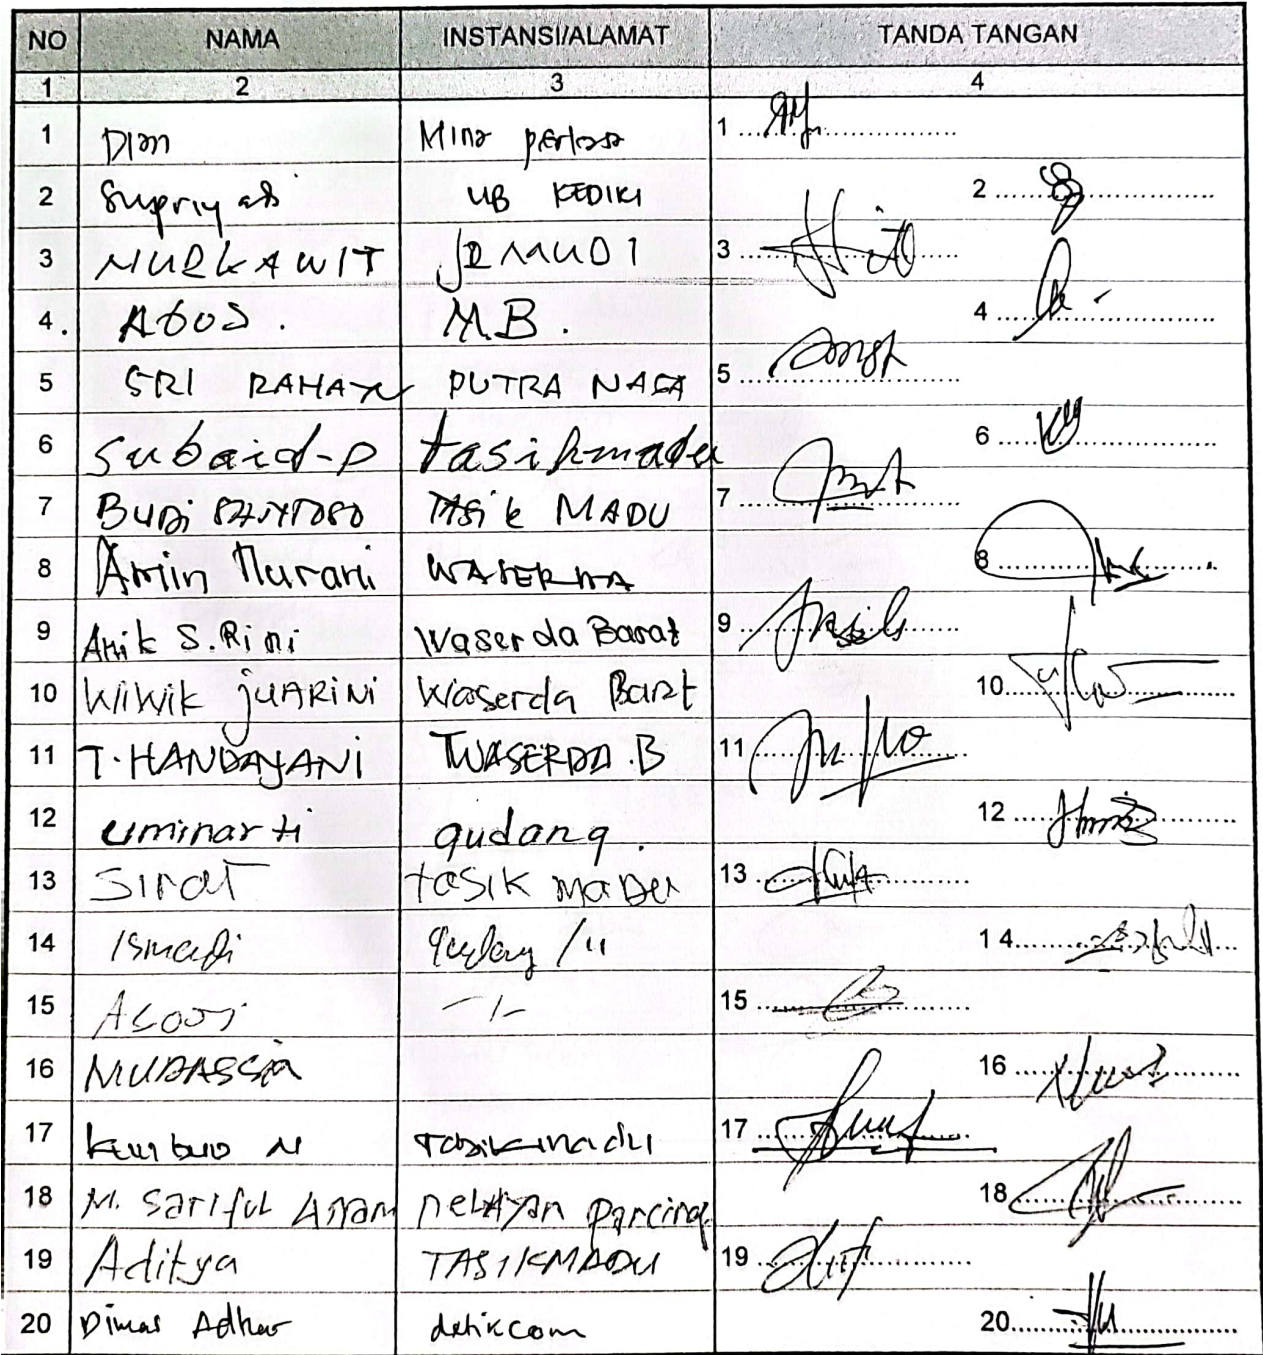 NO NAMA INSTANSI/ALAMAT TANDA TANGAN
1 2 3 4
1 Dian Mina perkasa 1
2 Supriyadi UB KEDIRI 2
3 NURKAWIT JEMUDI 3
4. AGUS. M.B. 4
5 SRI RAHAYU PUTRA NAGA 5
6 Subaid-P tasikmadu 6
7 Budi SANTOSO TASIK MADU 7
8 Amin Nurani WASERDA 8
9 Anik S.Rini Waserda Barat 9
10 WiWik JUARINI Waserda Barat 10
11 T.HANDAYANI WASERDA.B 11
12 uminarti gudang. 12
13 SIRAT tasik MADU 13
14 Ismadi Gudang /11 14
15 15
16 16
17 Tasikmadu 17
18 M. Sariful Anam nelayan pancing 18
19 Aditya TASIKMADU 19
20 Dimas Adhar detikcom 20